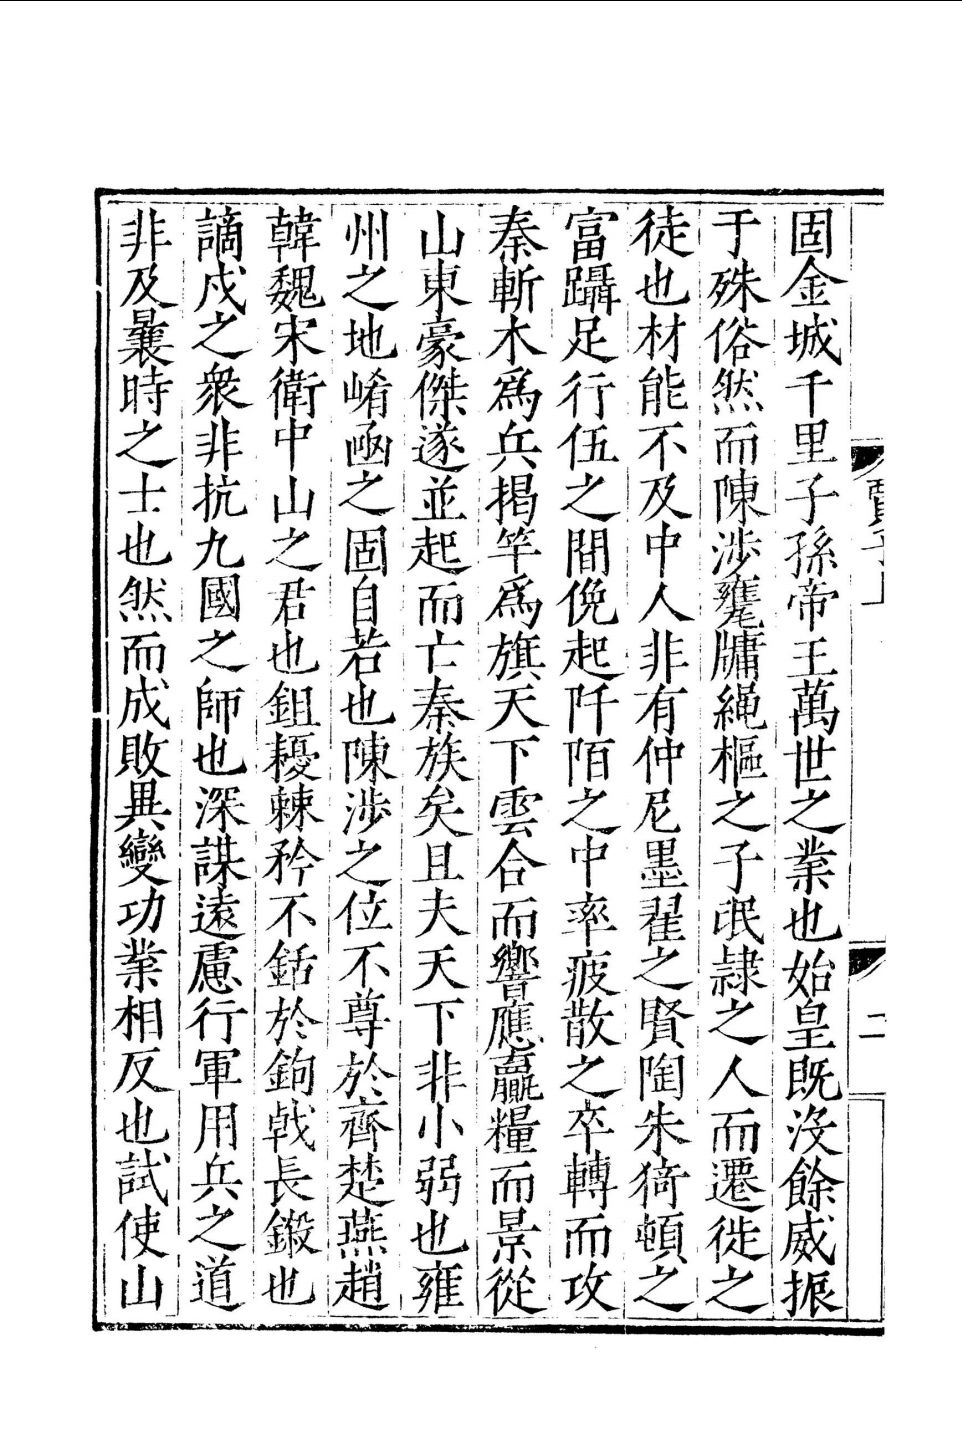 固金城千里子孫帝王萬世之業也始皇既沒餘威振
于殊俗然而陳涉甕牖繩樞之子氓隸之人而遷徙之
徒也材能不及中人非有仲尼墨翟之賢陶朱猗頓之
富躡足行伍之間俛起阡陌之中率疲散之卒轉而攻
秦斬木爲兵揭竿爲旗天下雲合而響應贏糧而景從
山東豪傑遂並起而亡秦族矣且夫天下非小弱也雍
州之地崤凾之固自若也陳涉之位不尊於齊楚燕趙
韓魏宋衛中山之君也鉏耰棘矜不銛於鉤戟長鎩也
謫戍之衆非抗九國之師也深謀遠慮行軍用兵之道
非及曩時之士也然而成敗異變功業相反也試使山
二